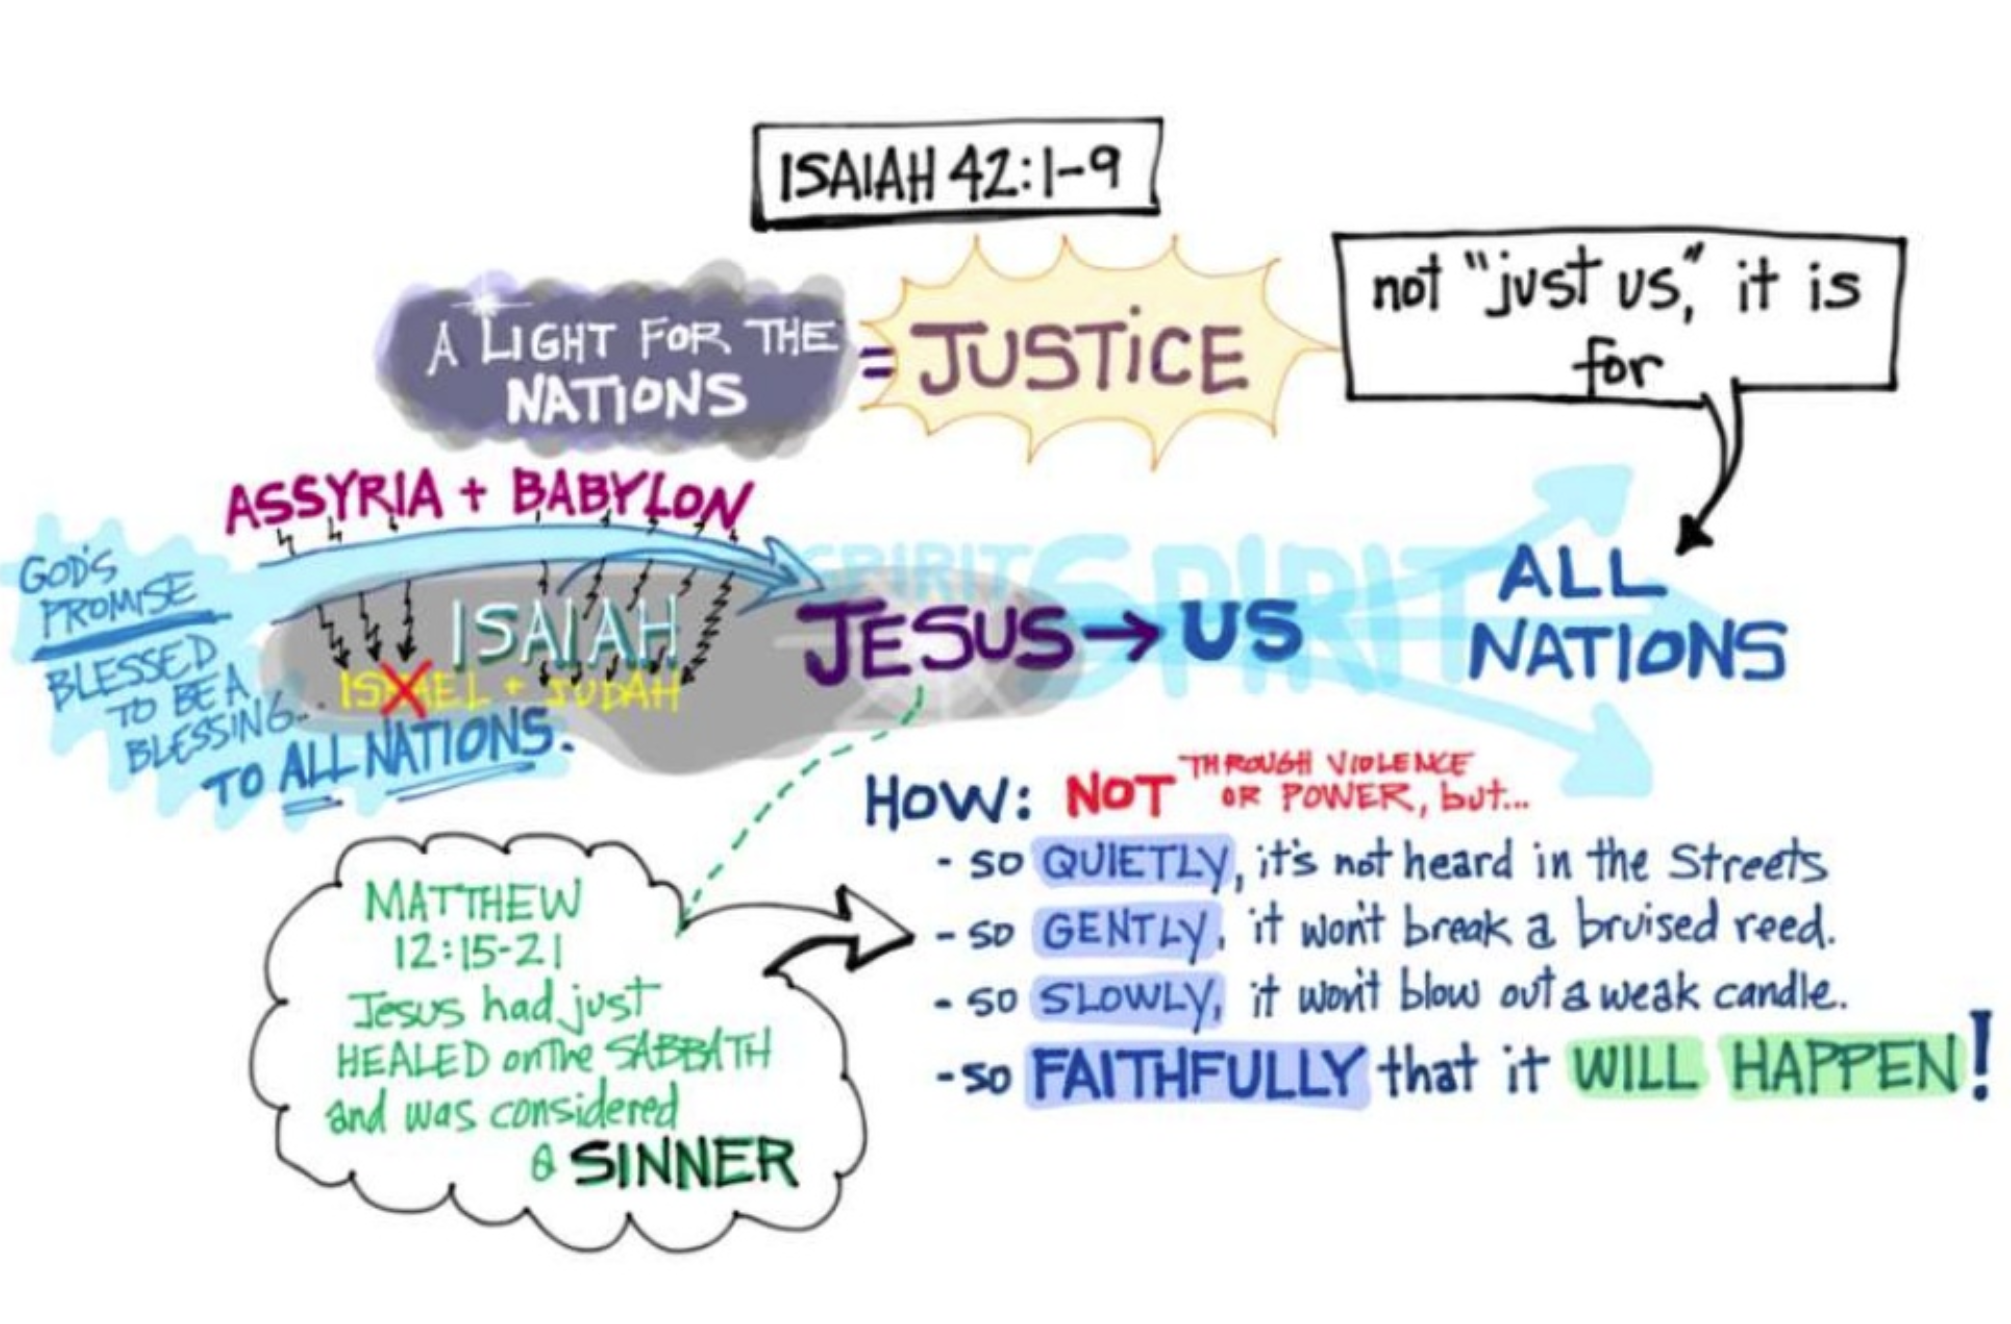 ISAIAH 42:1-9
A LIGHT FOR THE
NATIONS
= JUSTiCE
not "just us," it is
for
ASSYRIA + BABYLON
GOD'S
PROMISE
BLESSED
TO BE A
BLESSING...
TO ALL NATIONS.
ISAIAH
ISRAEL + JUDAH
SPIRIT SPIRIT
JESUS → US
ALL
NATIONS
HOW: NOT THROUGH VIOLENCE
OR POWER, but...
- SO QUIETLY, it's not heard in the Streets
- SO GENTLY, it won't break a bruised reed.
- SO SLOWLY, it won't blow out a weak candle.
- SO FAITHFULLY that it WILL HAPPEN!
MATTHEW
12:15-21
Jesus had just
HEALED on the SABBATH
and was considered
a SINNER